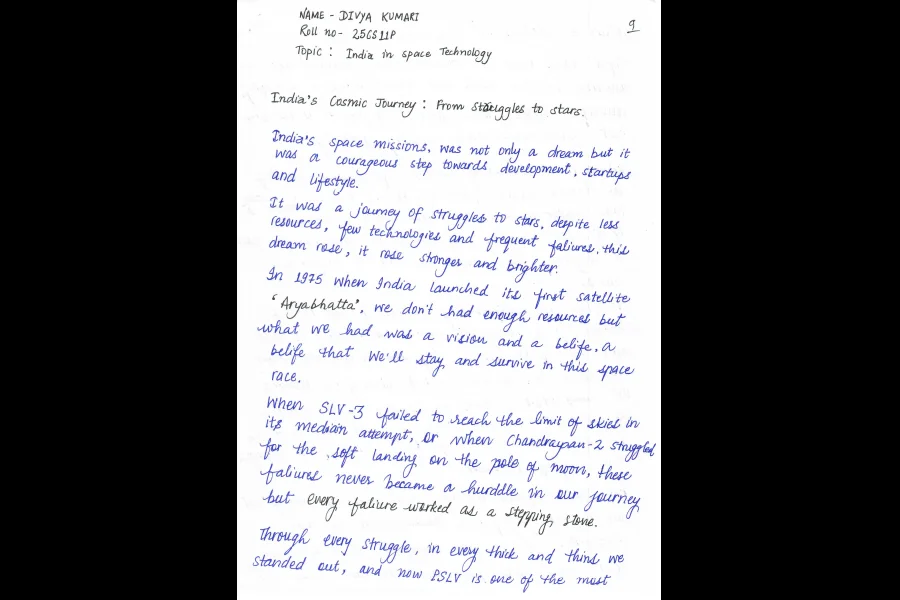 NAME - DIVYA KUMARI
9
Roll no- 25GS11P
Topic : India in space Technology
India's Cosmic Journey : From struggles to stars.
India's space missions, was not only a dream but it
was a courageous step towards development, startups
and lifestyle.
It was a journey of struggles to stars, despite less
resources, few technologies and frequent faliures, this
dream rose, it rose stronger and brighter.
In 1975 when India launched its first satellite
'Aryabhatta', we don't had enough resources but
what we had was a vision and a belife, a
belife that we'll stay and survive in this space
race.
When SLV-3 failed to reach the limit of skies in
its median attempt, or when Chandrayaan-2 struggled
for the soft landing on the pole of moon, these
faliures never became a hurddle in our journey
but every faliure worked as a stepping stone.
Through every struggle, in every thick and thins we
standed out, and now PSLV is one of the most